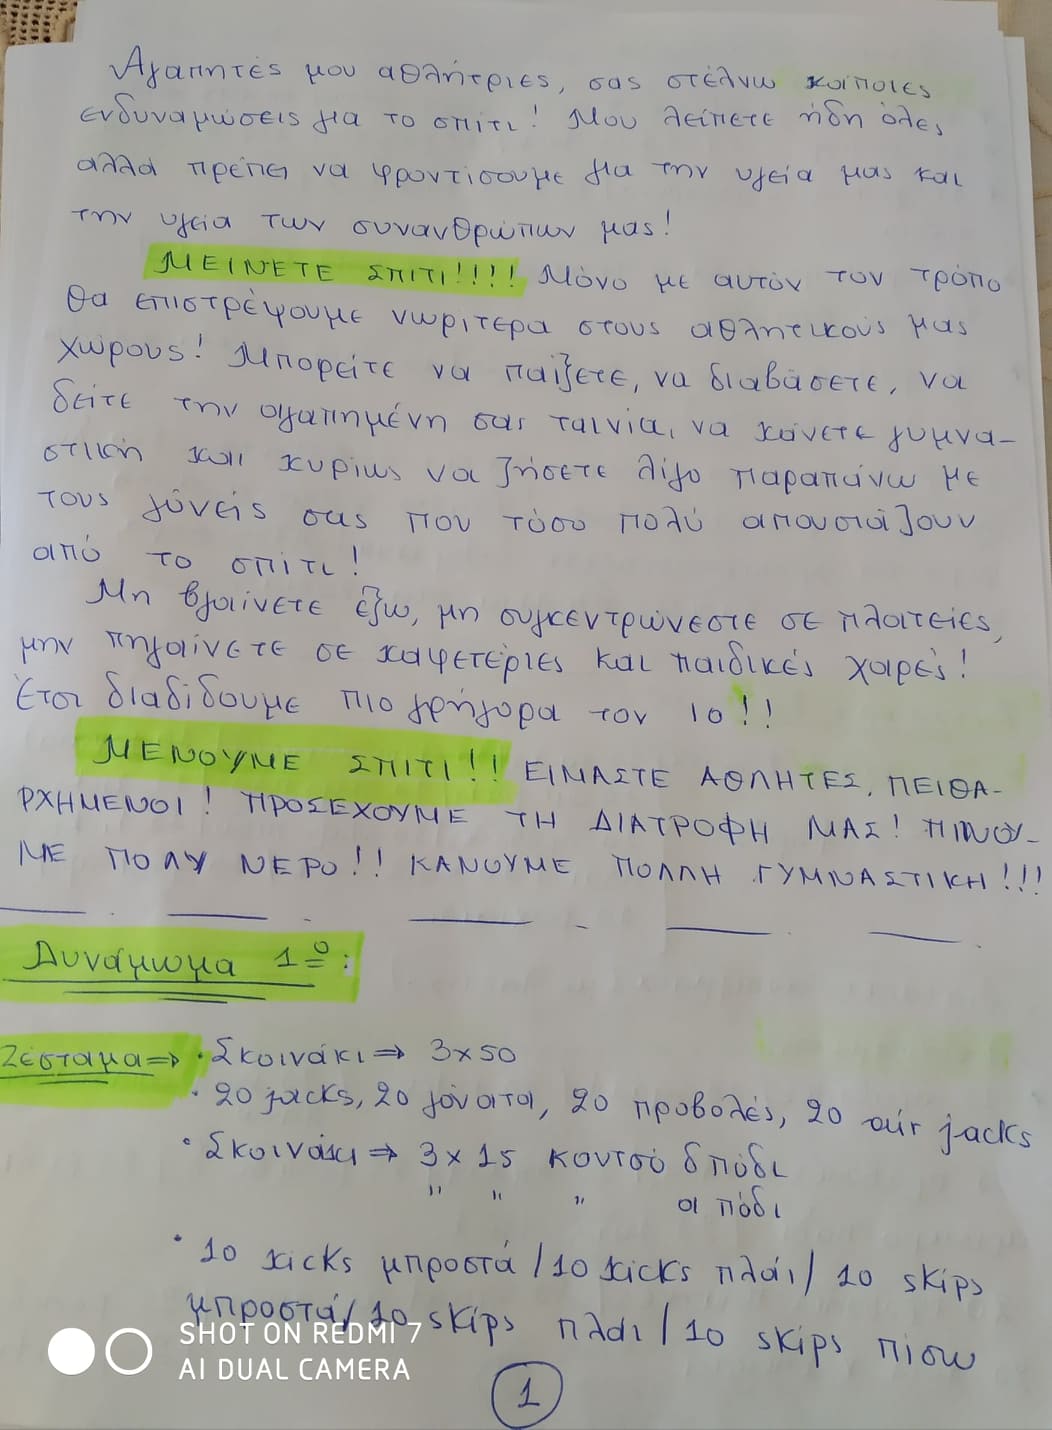 Αγαπητές μου αθλήτριες, σας στέλνω κάποιες
ενδυναμώσεις για το σπίτι! Μου λείπετε ήδη όλες,
αλλά πρέπει να φροντίσουμε για την υγεία μας και
την υγεία των συνανθρώπων μας!
ΜΕΙΝΕΤΕ ΣΠΙΤΙ!!!! Μόνο με αυτόν τον τρόπο
θα επιστρέψουμε νωρίτερα στους αθλητικούς μας
χώρους! Μπορείτε να παίξετε, να διαβάσετε, να
δείτε την αγαπημένη σας ταινία, να κάνετε γυμνα-
στική και κυρίως να ζήσετε λίγο παραπάνω με
τους γονείς σας που τόσο πολύ απουσιάζουν
από το σπίτι!
Μη βγαίνετε έξω, μη συγκεντρώνεστε σε πλατείες,
μην πηγαίνετε σε καφετέριες και παιδικές χαρές!
Έτσι διαδίδουμε πιο γρήγορα τον ιο!!
ΜΕΝΟΥΜΕ ΣΠΙΤΙ!! ΕΙΜΑΣΤΕ ΑΘΛΗΤΕΣ, ΠΕΙΘΑ-
ΡΧΗΜΕΝΟΙ! ΠΡΟΣΕΧΟΥΜΕ ΤΗ ΔΙΑΤΡΟΦΗ ΜΑΣ! ΠΙΝΟΥ-
ΜΕ ΠΟΛΥ ΝΕΡΟ!! ΚΑΝΟΥΜΕ ΠΟΛΛΗ ΓΥΜΝΑΣΤΙΚΗ!!!
Δυνάμωμα 1º:
Ζέσταμα⇒ • Σκοινάκι⇒ 3x50
• 20 jacks, 20 γόνατα, 20 προβολές, 20 air jacks
• Σκοινάκι⇒ 3x15 κουτσό δ πόδι
" " " α πόδι
• 10 kicks μπροστά/10 kicks πλάι/ 10 skips
μπροστά/10 skips πλάι/10 skips πίσω
SHOT ON REDMI 7
AI DUAL CAMERA
1